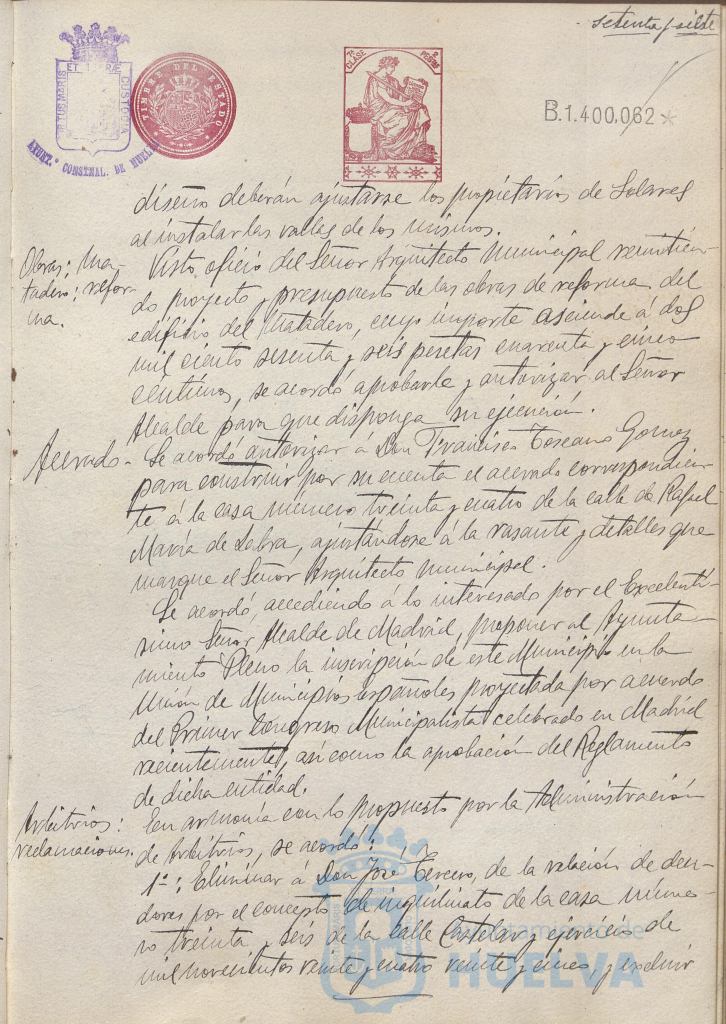 setenta y siete
PORTUS MARIS ET TERRÆ CUSTODIA
AYUNT.º CONSTNAL. DE HUELVA
TIMBRE DEL ESTADO
7ª CLASE 2 PESETAS
B.1.400,062*
diseño deberán ajustarse los propietarios de Solares
al instalar las vallas de los mismos.
Obras; Ma-
tadero; refor-
ma.
Visto oficio del Señor Arquitecto Municipal remitien-
do proyecto y presupuesto de las obras de reforma del
edificio del Matadero, cuyo importe asciende á dos
mil ciento sesenta y seis pesetas cuarenta y cinco
centimos, se acordó aprobarle y autorizar al Señor
Alcalde para que disponga su ejecución.
Acerado -
Se acordó autorizar á Don Francisco Toscano Gomez
para construir por su cuenta el acerado correspondien-
te á la casa número treinta y cuatro de la calle de Rafael
María de Labra, ajustándose á la rasante y detalles que
marque el Señor Arquitecto municipal.
Se acordó, accediendo á lo interesado por el Excelentí-
simo Señor Alcalde de Madrid, proponer al Ayunta-
miento Pleno la inscripción de este Municipio en la
Unión de Municipios españoles proyectada por acuerdo
del Primer Congreso Municipalista celebrado en Madrid
recientemente, así como la aprobación del Reglamento
de dicha entidad.
Arbitrios:
reclamaciones.
En armonía con lo propuesto por la Administración
de Arbitrios, se acordó:
1º: Eliminar á Don José Tercero, de la relación de deu-
dores por el concepto de inquilinato de la casa núme-
ro treinta y seis de la calle Castelar y ejercicio de
mil novecientos veinte y cuatro veinte y cinco, y excluir
Ayuntamiento de
HUELVA